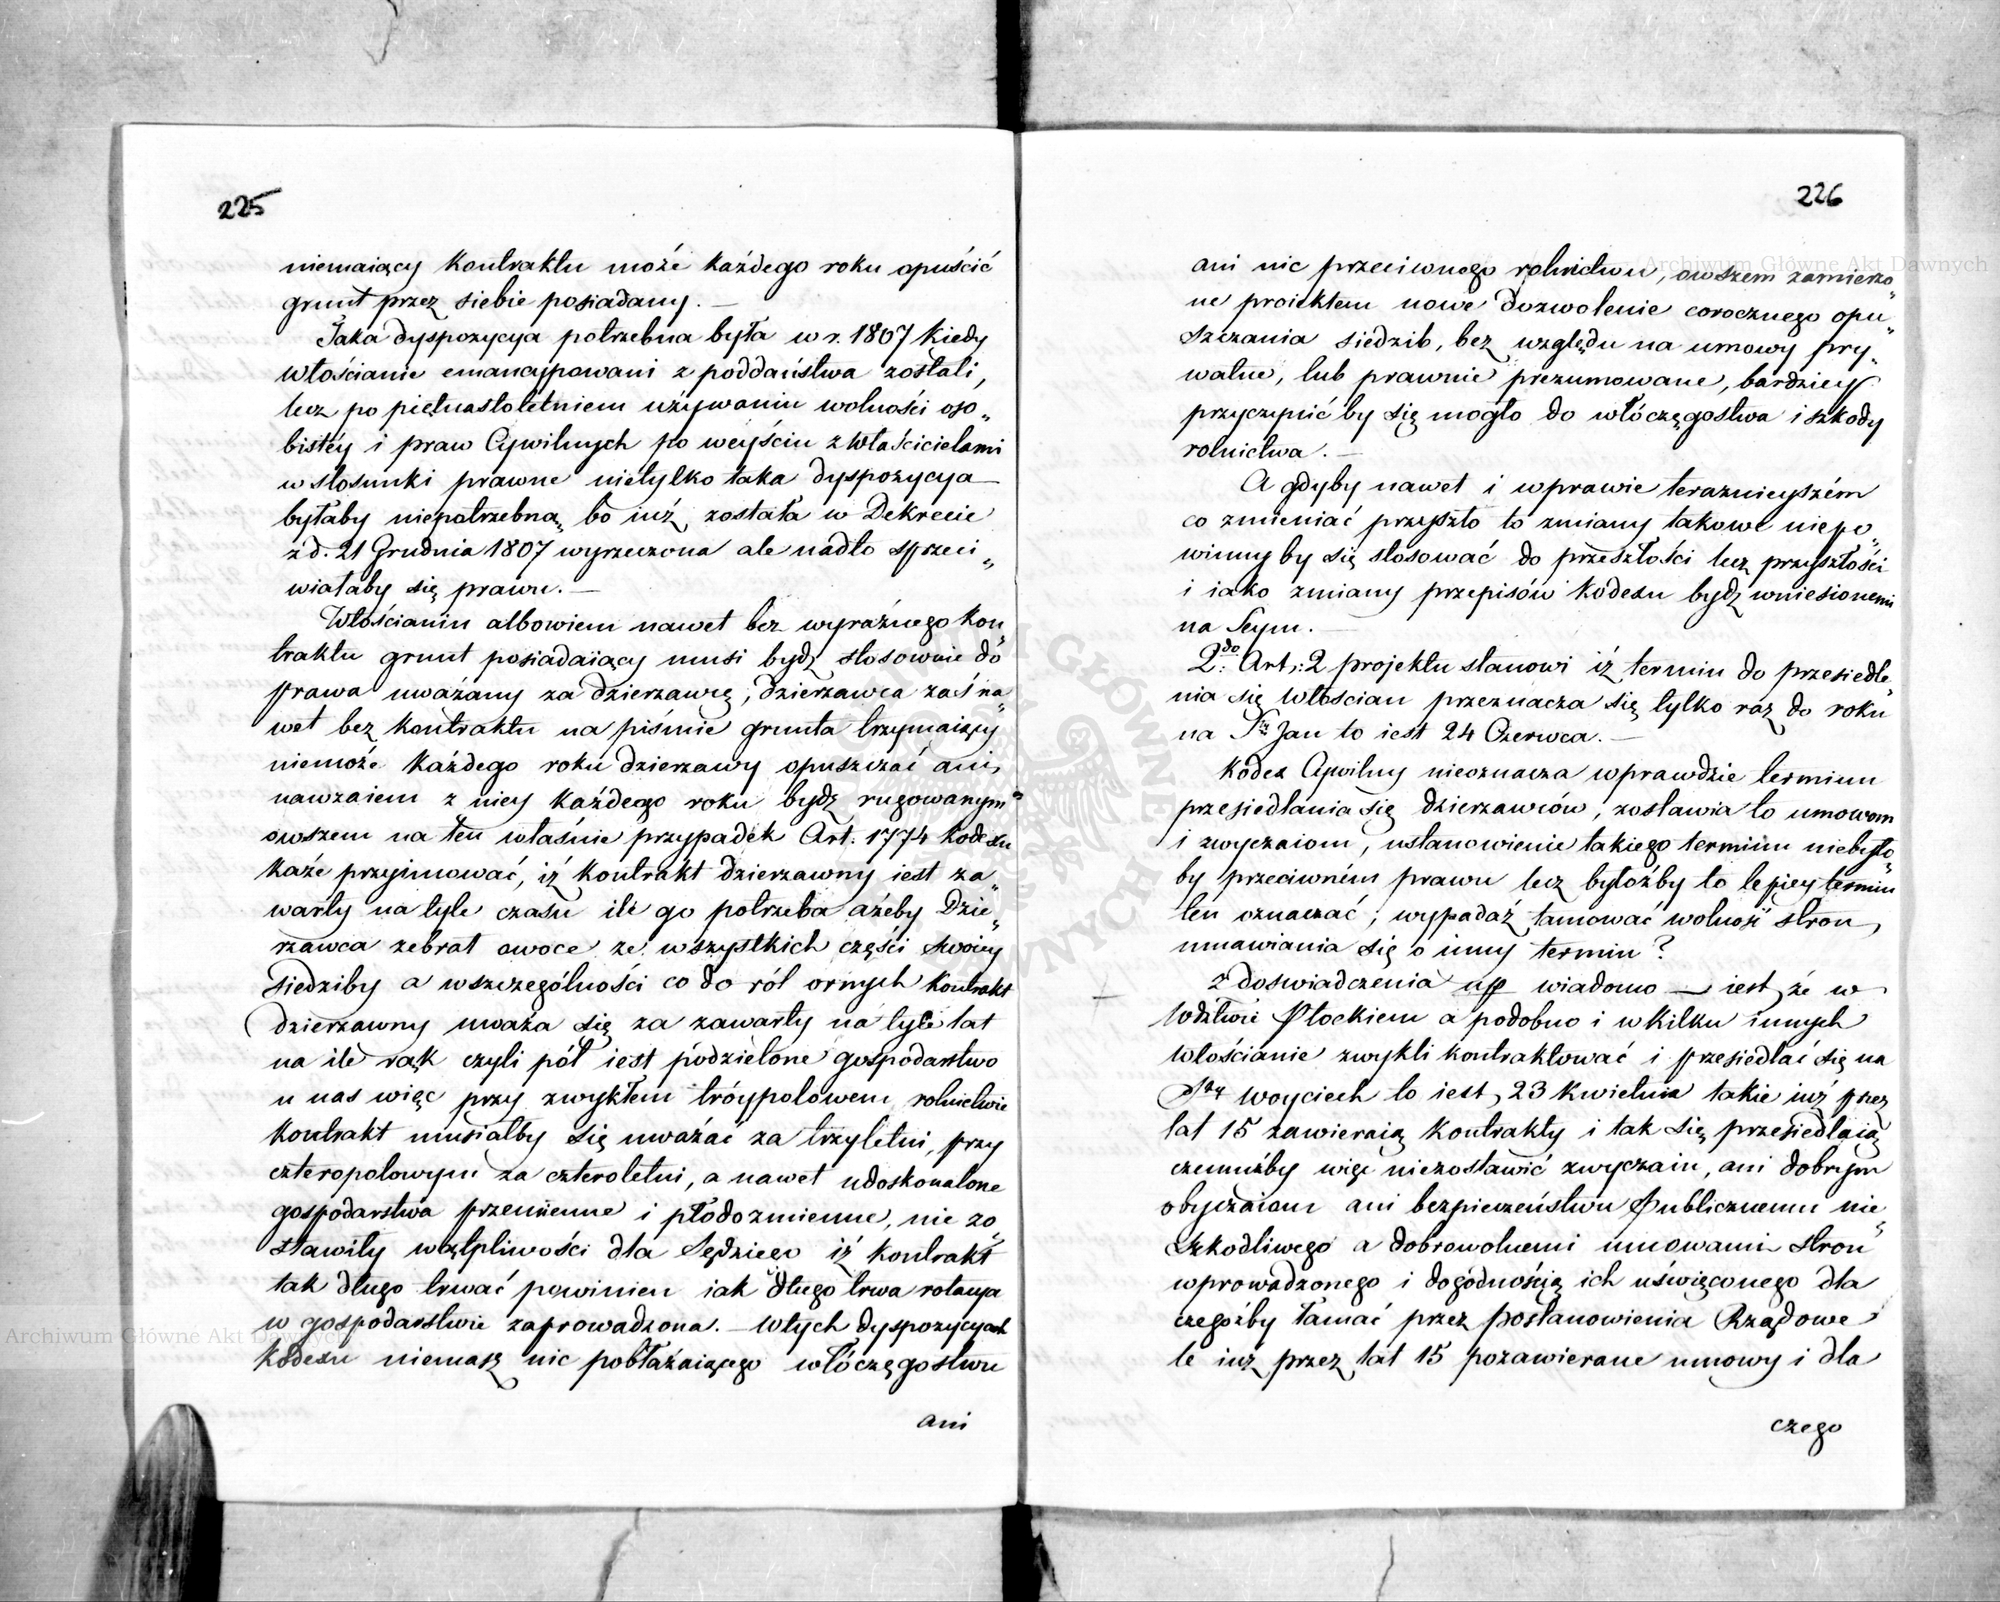 225
niemaiący kontraktu może każdego roku opuścić
grunt przez siebie posiadany. —
Taka dyspozycya potrzebna była w r. 1807 kiedy
włościanie emancypowani z poddaństwa zostali,
lecz po piętnastoletniem używaniu wolności oso„
bistéy i praw Cywilnych po weyściu z właścicielami
w stosunki prawne nietylko taka dyspozycya
byłaby niepotrzebną, bo iuż została w Dekrecie
z d. 21 Grudnia 1807 wyrzeczona ale nadto sprzeci„
wiałaby się prawu. —
Włościanin albowiem nawet bez wyraźnego kon„
traktu grunt posiadaiący musi bydź stosownie do
prawa uważany za dzierzawcę, dzierzawca zaś na„
wet bez kontraktu na piśmie grunta trzymaiący
niemoże każdego roku dzierzawy opuszczać ani
nawzaiem z niey każdego roku bydź rugowanym
owszem na ten właśnie przypadek Art. 1774 kodexu
każe przyimować, iż kontrakt dzierzawny iest za„
warty na tyle czasu ile go potrzeba ażeby Dzie„
rzawca zebrał owoce ze wszystkich części swoiey
siedziby a wszczególności co do ról ornych kontrakt
dzierzawny uważa się za zawarty na tyle lat
na ile rąk czyli pól iest podzielone gospodarstwo
u nas więc przy zwykłem tróypolowem rolnictwie
kontrakt musiałby się uważać za trzyletni, przy
czteropolowym za czteroletni, a nawet udoskonalone
gospodarstwa przemienne i płodozmienne, nie zo„
stawiły wątpliwości dla Sędziego iż kontrakt
tak długo trwać powinien iak długo trwa rotacya
w gospodarstwie zaprowadzona. — W tych dyspozycyach
kodexu niemasz nic pobłażaiącego włóczęgostwu
ani
226
ani nic przeciwnego rolnictwu, owszem zamierzo„
ne proiektem nowe dozwolenie corocznego opu„
szczania siedzib, bez względu na umowy pry„
watne, lub prawnie prezumowane, bardziey
przyczynić by się mogło do włóczęgostwa i szkody
rolnictwa. —
A gdyby nawet i w prawie teraznieyszém
co zmieniać przyszło to zmiany takowe niepo„
winny by się stosować do przeszłości lecz przyszłości
i iako zmiany przepisów kodexu bydź wniesionemi
na Seym. —
2do: Art: 2 projektu stanowi iż termin do przesiedle„
nia się włościan przeznacza się tylko raz do roku
na Sty Jan to iest 24 Czerwca. —
Kodex Cywilny nieoznacza wprawdzie terminu
przesiedlania się dzierzawców, zostawia to umowom
i zwyczaiom, ustanowienie takiego terminu niebyło„
by przeciwném prawu lecz byłożby to lepiey termin
ten oznaczać; wypadaż tamować wolność stron
umawiania się o inny termin?
z doswiadczenia wiadomo — iest, że w
Wdztwie Płockiem a podobno i w kilku innych
włościanie zwykli kontraktować i przesiedlać się na
Sty Woyciech to iest 23 Kwietnia takie iuż przez
lat 15 zawieraią kontrakty i tak się przesiedlaią
czemużby więc niezostawić zwyczaiu, ani dobrym
obyczaiom ani bezpieczeństwu Publicznemu nie„
szkodliwego a dobrowolnemi umowami stron
wprowadzonego i dogodnością ich uświęconego dla
czegożby łamać przez postanowienia Rządowe
te iuż przez lat 15 pozawierane umowy i dla
czego
Archiwum Główne Akt Dawnych
Archiwum Główne Akt Dawnych